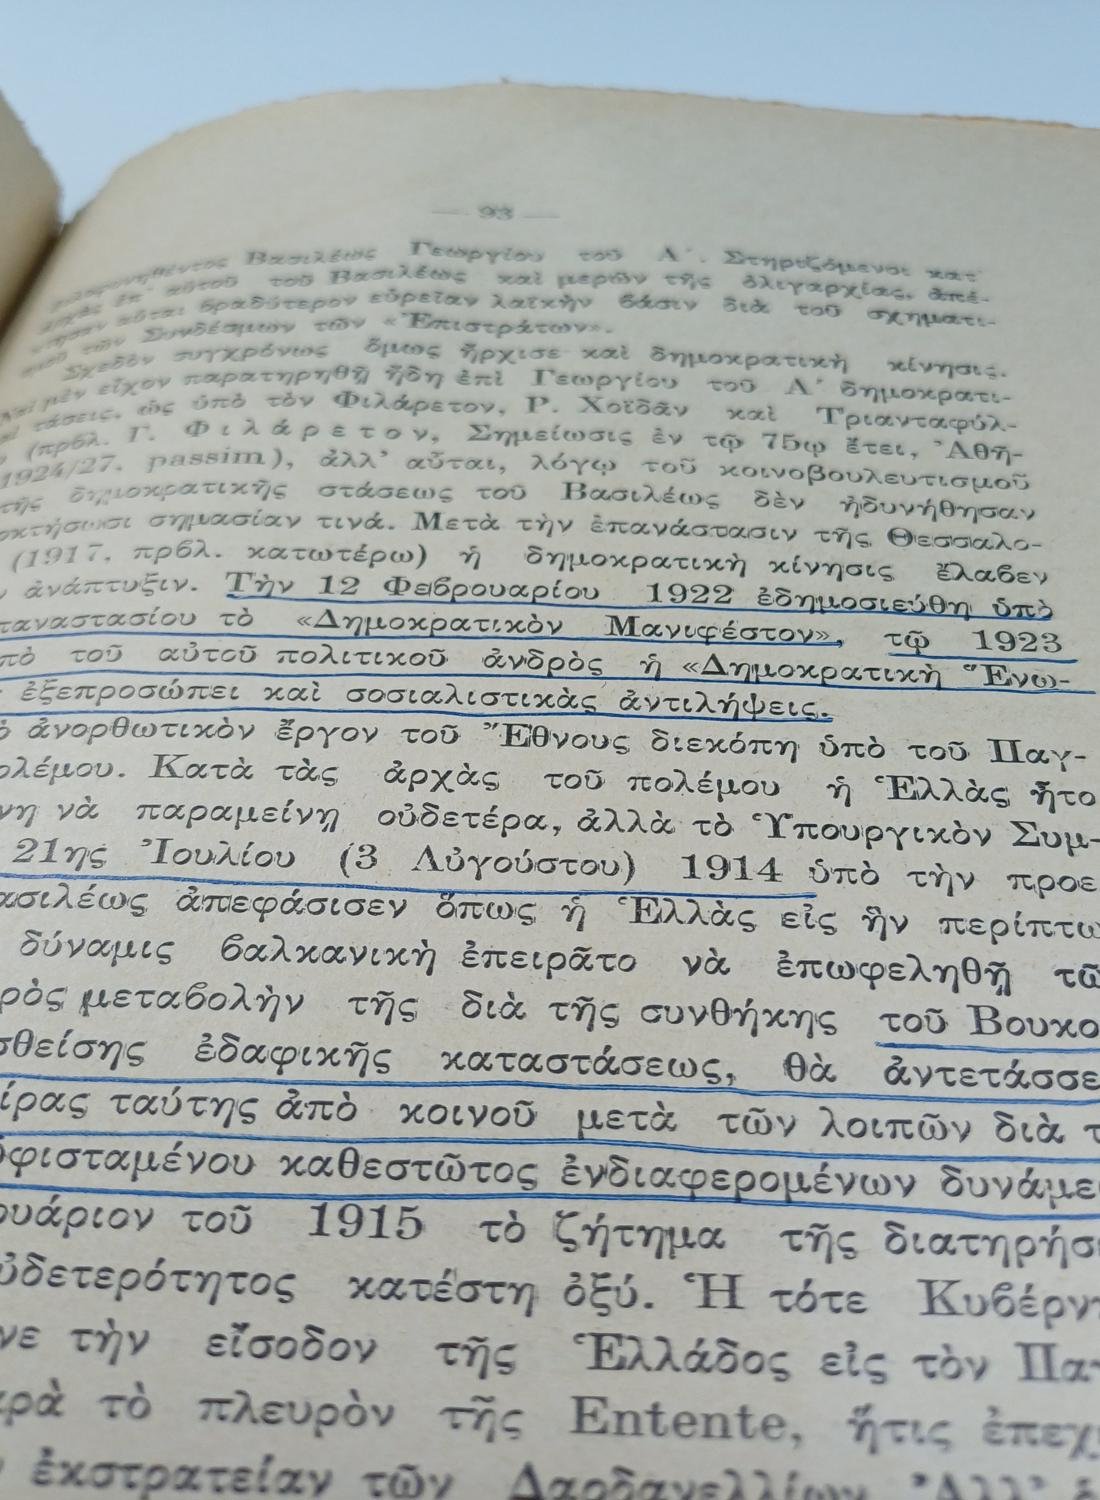 — 93 —
Βασιλέως Γεωργίου τοῦ Α΄. Στηριζόμενοι κατ᾿
ἀρχὰς ἐπ᾿ αὐτοῦ τοῦ Βασιλέως καὶ μερῶν τῆς ὀλιγαρχίας, ἀπέ-
αὗται βραδύτερον εὐρεῖαν λαϊκὴν βάσιν διὰ τοῦ σχηματι-
τῶν Συνδέσμων τῶν «Ἐπιστράτων».
Σχεδὸν συγχρόνως ὅμως ἤρχισε καὶ δημοκρατικὴ κίνησις.
μὲν εἶχον παρατηρηθῇ ἤδη ἐπὶ Γεωργίου τοῦ Α΄ δημοκρατι-
τάσεις, ὡς ὑπὸ τὸν Φιλάρετον, Ρ. Χοϊδᾶν καὶ Τριανταφύλ-
(πρβλ. Γ. Φιλάρετον, Σημείωσις ἐν τῷ 75ῳ ἔτει, Ἀθῆ-
1924/27, passim), ἀλλ᾿ αὗται, λόγῳ τοῦ κοινοβουλευτισμοῦ
τῆς δημοκρατικῆς στάσεως τοῦ Βασιλέως δὲν ἠδυνήθησαν
οκτήσωσι σημασίαν τινά. Μετὰ τὴν ἐπανάστασιν τῆς Θεσσαλο-
(1917, πρβλ. κατωτέρω) ἡ δημοκρατικὴ κίνησις ἔλαβεν
ἀνάπτυξιν. Τὴν 12 Φεβρουαρίου 1922 ἐδημοσιεύθη ὑπὸ
παναστασίου τὸ «Δημοκρατικὸν Μανιφέστον», τῷ 1923
πὸ τοῦ αὐτοῦ πολιτικοῦ ἀνδρὸς ἡ «Δημοκρατικὴ Ἕνω-
ἐξεπροσώπει καὶ σοσιαλιστικὰς ἀντιλήψεις.
ὸ ἀνορθωτικὸν ἔργον τοῦ Ἔθνους διεκόπη ὑπὸ τοῦ Παγ-
ολέμου. Κατὰ τὰς ἀρχὰς τοῦ πολέμου ἡ Ἑλλὰς ἦτο
νη νὰ παραμείνῃ οὐδετέρα, ἀλλὰ τὸ Ὑπουργικὸν Συμ-
21ης Ἰουλίου (3 Αὐγούστου) 1914 ὑπὸ τὴν προε
ασιλέως ἀπεφάσισεν ὅπως ἡ Ἑλλὰς εἰς ἣν περίπτω
δύναμις βαλκανικὴ ἐπειρᾶτο νὰ ἐπωφεληθῇ τῶ
ρὸς μεταβολὴν τῆς διὰ τῆς συνθήκης τοῦ Βουκο
σθείσης ἐδαφικῆς καταστάσεως, θὰ ἀντετάσσε
ίρας ταύτης ἀπὸ κοινοῦ μετὰ τῶν λοιπῶν διὰ τ
ὑφισταμένου καθεστῶτος ἐνδιαφερομένων δυνάμε
ουάριον τοῦ 1915 τὸ ζήτημα τῆς διατηρήσ
ὐδετερότητος κατέστη ὀξύ. Ἡ τότε Κυβέρν
νε τὴν εἴσοδον τῆς Ἑλλάδος εἰς τὸν Πα
ρὰ τὸ πλευρὸν τῆς Entente, ἥτις ἐπεχ
ἐκστρατείαν τῶν Δαρδανελλίων. Ἀλλ᾿